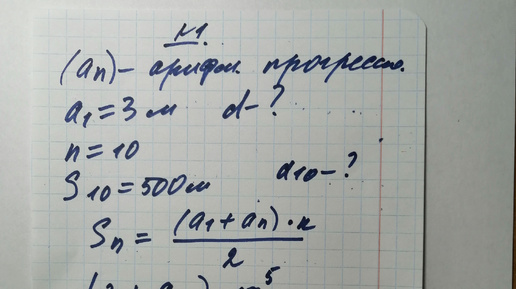 №1.
(aₙ) – арифм. прогрессия.
a₁ = 3 м d – ?
n = 10
S₁₀ = 500 м a₁₀ – ?
Sₙ = (a₁ + aₙ) · n / 2